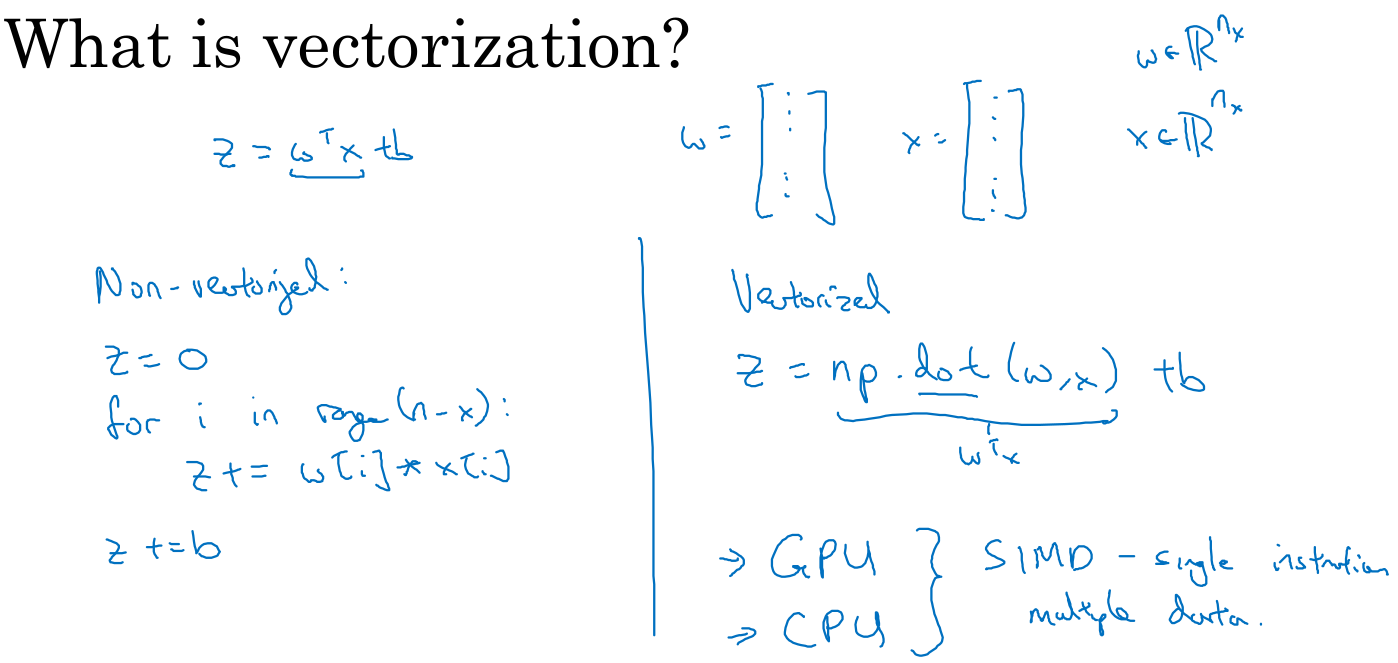 What is vectorization?
z = wᵀx + b
w = [ ⋮ ⋮ ] x = [ ⋮ ⋮ ]
w ∈ ℝⁿˣ
x ∈ ℝⁿˣ
Non-vectorized:
z = 0
for i in range(n-x):
z += w[i] * x[i]
z += b
Vectorized
z = np.dot(w,x) + b
wᵀx
→ GPU
→ CPU
} SIMD - single instruction
multiple data.